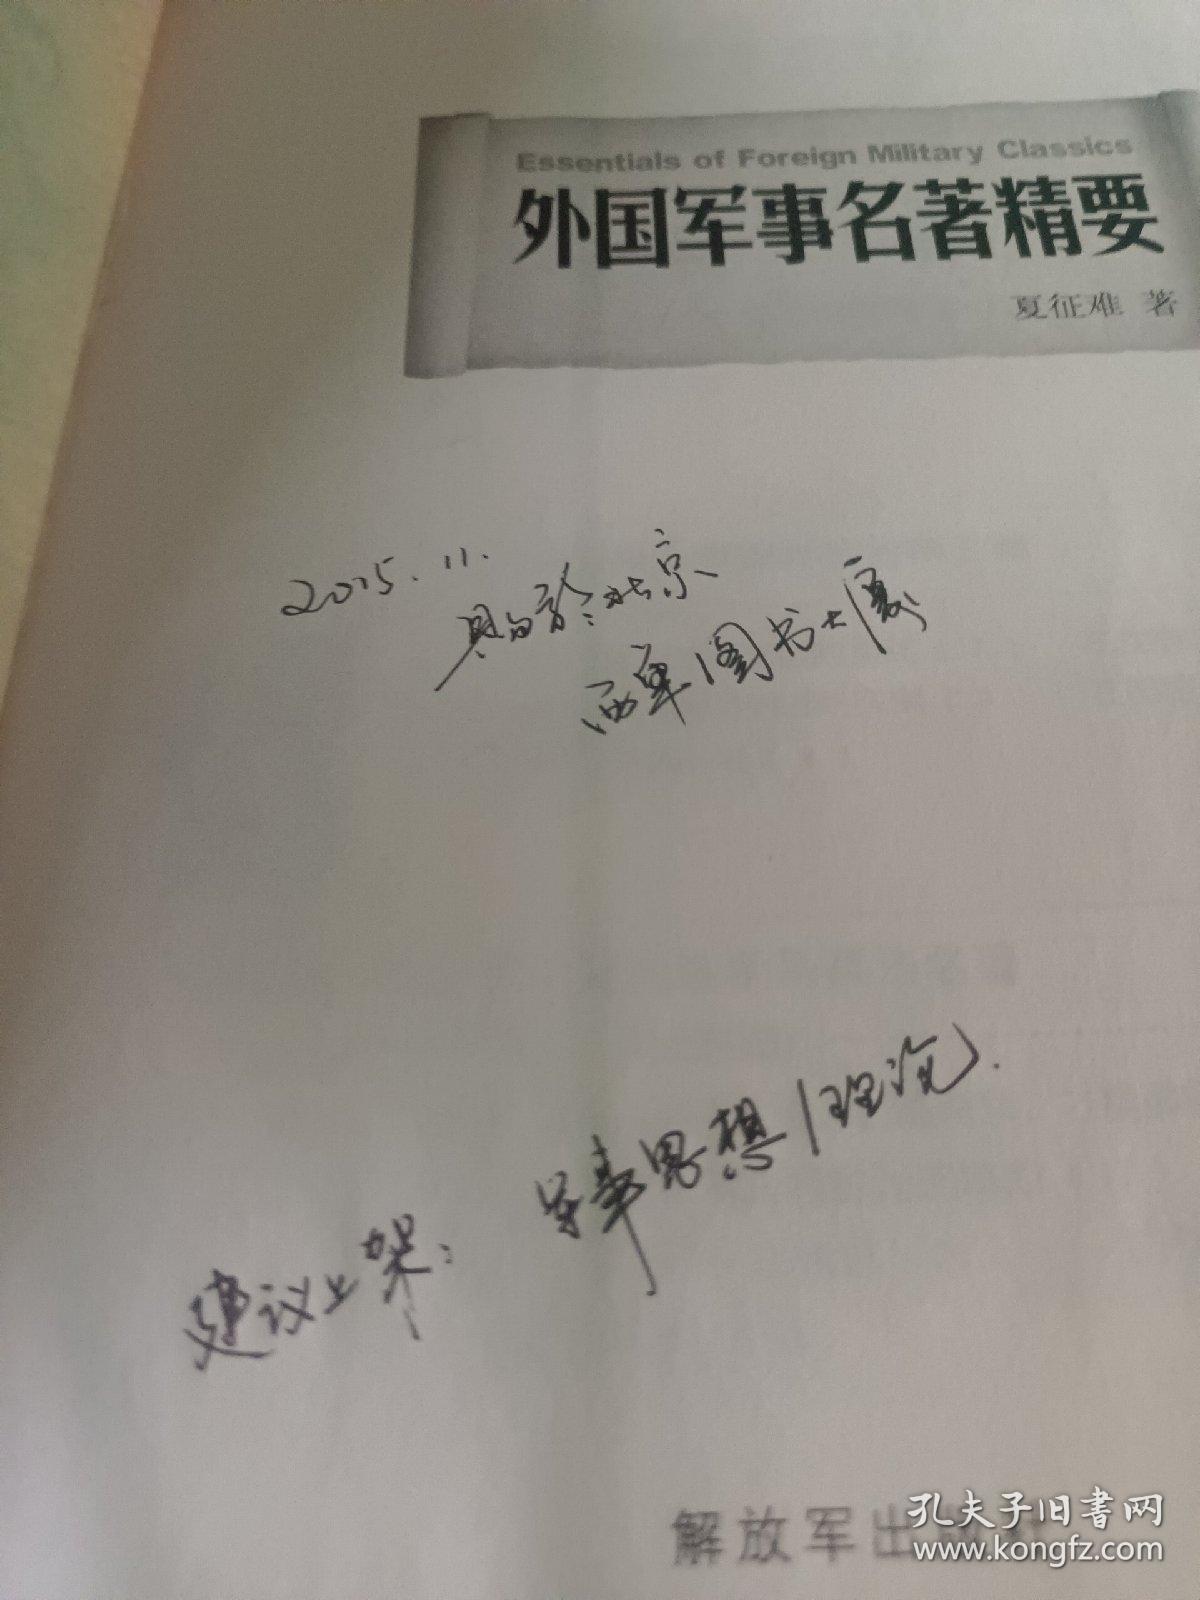 Essentials of Foreign Military Classics
外国军事名著精要
夏征难 著
2015.11.
购于北京
西单图书大厦
建议上架：军事思想/理论.
解放军出版社
孔夫子旧书网
www.kongfz.com